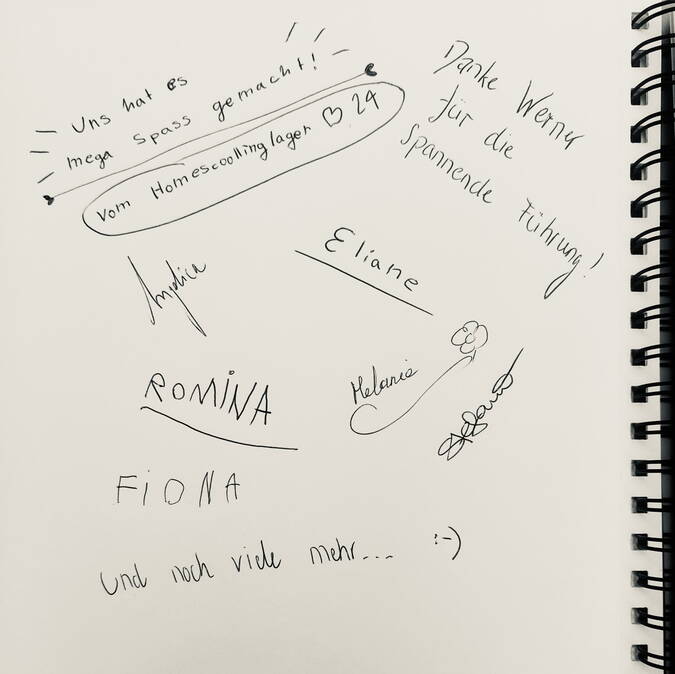 Uns hat es
mega Spass gemacht!
vom Homescoollinglager ♡ 24
Danke Werner
für die
Spannende Führung!
Angelica
Eliane
ROMiNA
Melanie
Stefanie
FiONA
und noch viele mehr... :-)